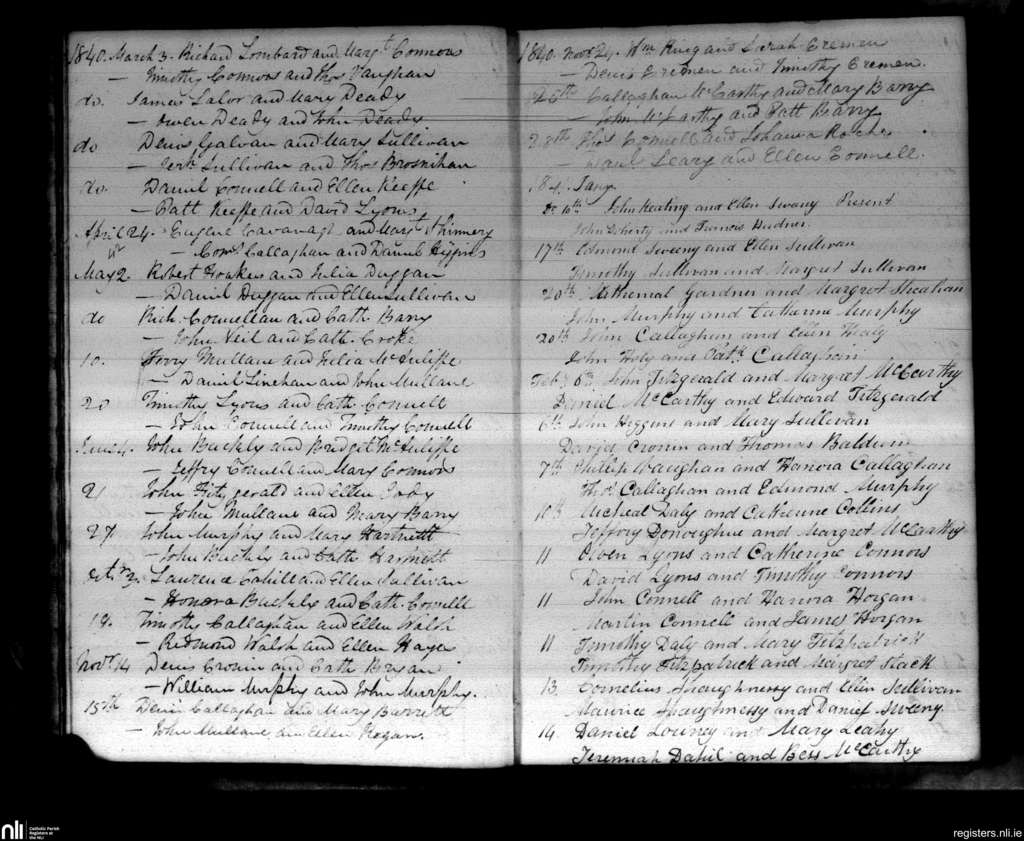 1840. March 3. Richard Lombard and Margt Connors
— Timothy Connors and Thos Vaughan
do. James Lalor and Mary Deady
— Owen Deady and John Deady
do Denis Galvan and Mary Sullivan
— Jerh Sullivan and Thos Brosnihan
do. Daniel Connell and Ellen Keeffe
— Patt Keeffe and David Lyons
April 24. Eugene Cavanagh and Margt Shinnery
— Corns Callaghan and Daniel Higgins
May 2. Robert Hawkes and Julia Duggan
— Daniel Duggan and Ellen Sullivan
do Rich. Connellan and Cath Barry
— John Neil and Cath. Cooke
10. Ferry Mullane and Julia McAuliffe
— Daniel Linehan and John Mullane
20 Timothy Lyons and Cath Connell
— John Connell and Timothy Connell
June 4. John Buckly and Bridget McAuliffe
— Jeffry Connell and Mary Connors
21 John Fitzgerald and Ellen
— John Mullane and Mary Barry
27 John Murphy and Mary Hartnett
— John Buckly and Cath Hartnett
Octr 3. Laurence Cahill and Ellen Sullivan
— Honora Buckly and Cath. Connell
19. Timothy Callaghan and Ellen Walsh
— Redmond Walsh and Ellen Hayes
Novr 14 Denis Cronin and Cath Bryan
— William Murphy and John Murphy.
15th Denis Callaghan and Mary Barrett
— John Mullane and Ellen Hogan.
1840. Novr 24. Wm King and Sarah Cremen
— Denis Cremen and Timothy Cremen.
25th Callaghan McCarthy and Mary Barry
— John McCarthy and Patt Barry
28th Thos Connell and Johanna Roche
— Danl Leary and Ellen Connell.
184 Jany
10th John Keating and Ellen Sweeny Present
John Doherty and Francis Hudner
17th Edmond Sweeny and Ellen Sullivan
Timothy Sullivan and Margret Sullivan
20th Gardner and Margret Sheahan
John Murphy and Catherine Murphy
20th John Callaghan and Ellen Healy
John Holy and Cath Callaghan
Feby 6th John Fitzgerald and Margret McCarthy
Daniel McCarthy and Edward Fitzgerald
6th John Higgins and Mary Sullivan
David Cronin and Thomas Baldwin
7th Phillip Vaughan and Hanora Callaghan
Thos Callaghan and Edmond Murphy
10th Micheal Daly and Catherine Collins
Jeffory Donoughue and Margret McCarthy
11 Owen Lyons and Catherine Connors
David Lyons and Timothy Connors
11 John Connell and Hanora Horgan
Martin Connell and James Horgan
11 Timothy Daly and Mary Fitzpatrick
Timothy Fitzpatrick and Margret Stack
13. Cornelius Shaughnessy and Ellen Sullivan
Maurice Shaughnessy and Daniel Sweeny
14. Daniel Louney and Mary Leahy
Jeremiah Dahil and Bess McCarthy
nli Catholic Parish
Registers at
the NLI
registers.nli.ie